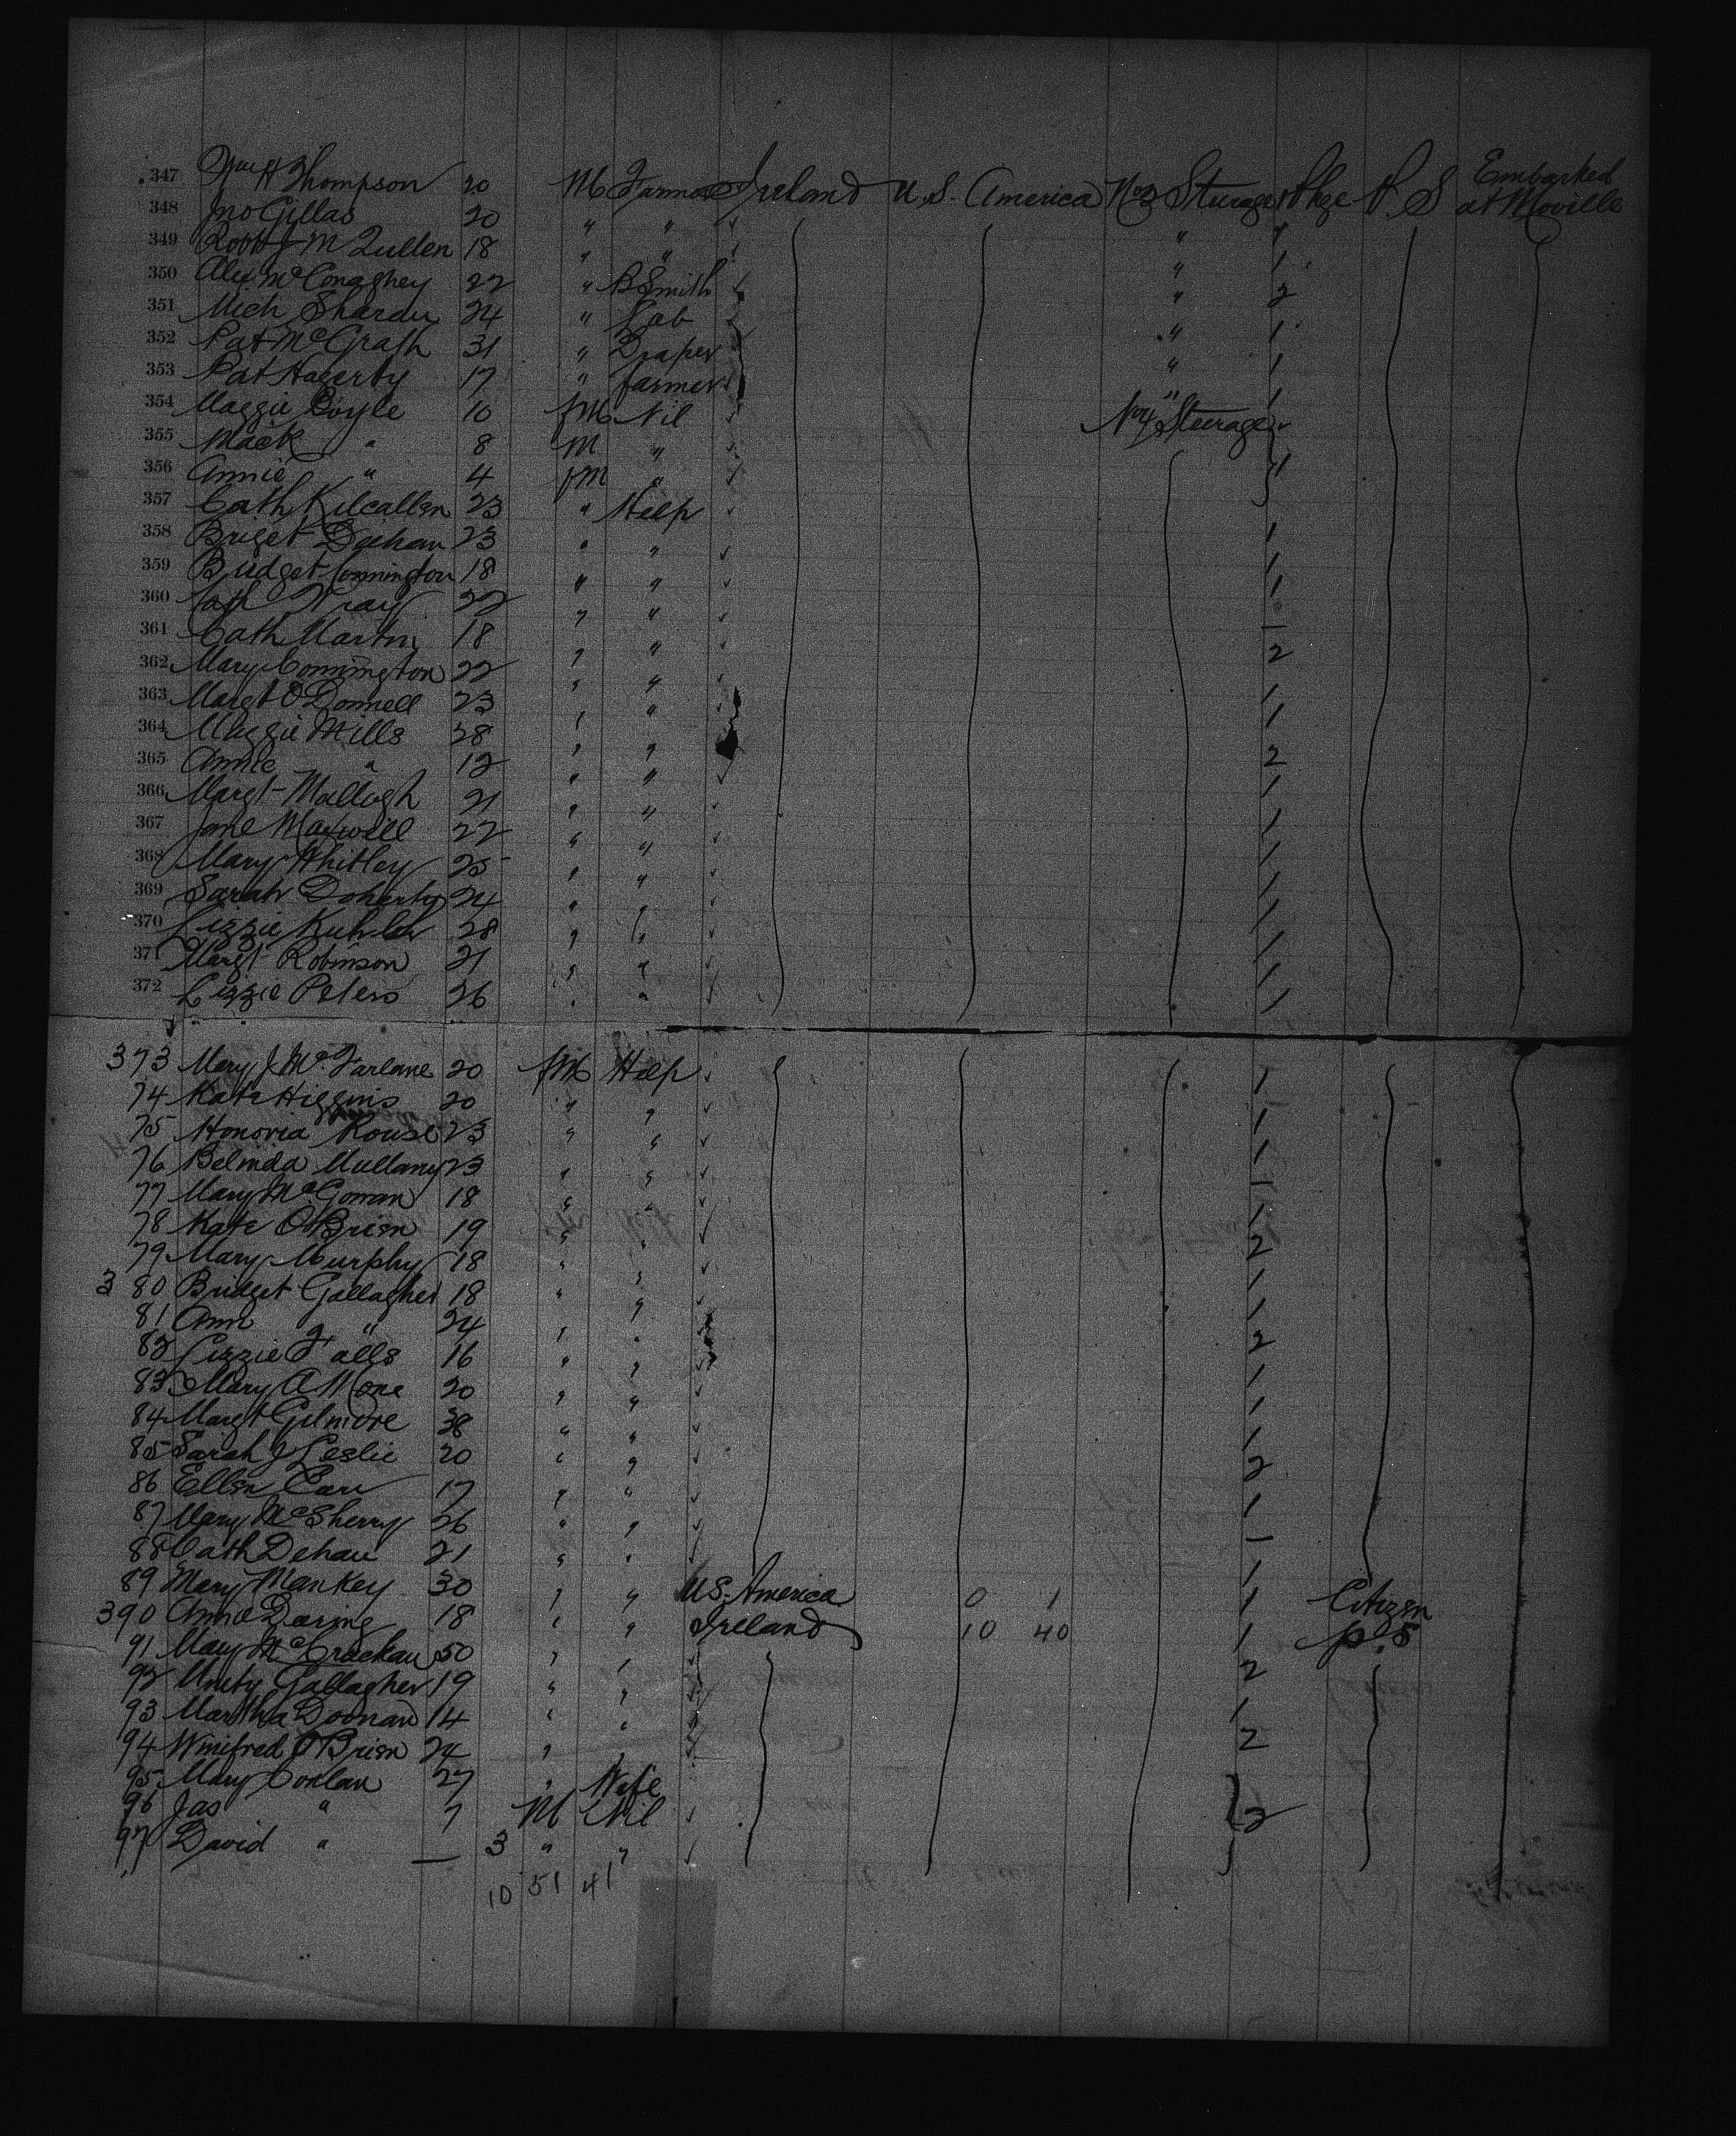 347 Wm H Thompson 20 M Farmer Ireland U.S. America No 3 Steerage 1 Pkge P. S Embarked at Moville
348 Jno Gillas 20 " " " 1
349 Robt J M Quillen 18 " " " 1
350 Alex McConaghey 22 " B Smith " 2
351 Mich 24 " Lab " 1
352 Pat McGrath 31 " Draper " 1
353 Pat Hagerty 17 " farmer " 1
354 Maggie Boyle 10 fM Nil No 4 Steerage
355 Mack " 8 M " 1
356 Annie " 4 fM "
357 Cath Kilcallen 23 " Help
358 Briget 23 " " 1
359 Bridget Connington 18 " " 1
360 Cath Wray 22 " " 1
361 Cath Martin 18 " " —
362 Mary Connington 22 " " 2
363 Margt O'Donnell 23 " " 1
364 Maggie Mills 28 " " 1
365 Annie " 12 " " 2
366 Margt Mallogh 21 " " 1
367 Jane Maxwell 22 " " 1
368 Mary Whitley 25 " " 1
369 Sarah Doherty 24 " " 1
370 Lizzie 28 " " 1
371 Margt Robinson 21 " " 1
372 Lizzie Peters 26 " " 1
373 Mary J McFarlane 20 fM Help 1
74 Kate Higgins 20 " " 1
75 Honoria Rouse 23 " " 1
76 Belinda Mullany 23 " " —
77 Mary McGowan 18 " " 1
78 Kate O'Brien 19 " " 2
79 Mary Murphy 18 " " 1
380 Bridget Gallagher 18 " " 1
81 Ann " 24 " " 2
82 Lizzie Falls 16 " " 1
83 Mary A Mone 20 " " 1
84 Margt Gilmore 38 " " 1
85 Sarah J Leslie 20 " " 2
86 Ellen Carr 17 " " 1
87 Mary McSherry 26 " " —
88 Cath Dehan 21 " " 1
89 Mary Mankey 30 " " U.S. America 0 1 1 Citizen
390 Annie Daring 18 " " Ireland 10 40 1 p. S
91 Mary McCrackan 50 " " 2
92 Unity Gallagher 19 " " 1
93 Martha Doonan 14 " " 2
94 Winifred O'Brien 24 " "
95 Mary Conlan 27 " Wife
96 Jas " 7 M Nil 2
97 David " — 3 " "
10 51 41